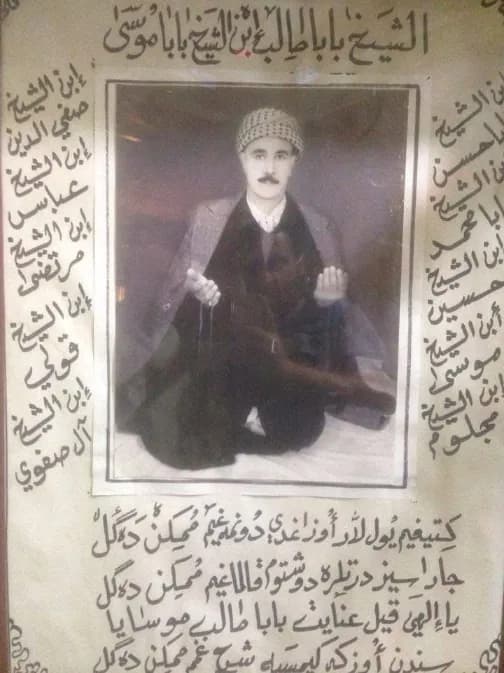 الشيخ بابا طالب إبن الشيخ بابا موسى
إبن الشيخ
باحسن
إبن الشيخ
بامحمد
إبن الشيخ
حسين
أبن الشيخ
موسى
إبن الشيخ
مجلوم
إبن الشيخ
صفي الدين
إبن الشيخ
عباس
إبن الشيخ
مرتضى
إبن الشيخ
قولي
إبن الشيخ
آل صفوي
كتيغيم يول لار أوزاغدي دونمه غيم ممكن ده گل
جاراسيز دردلره دوشتوم قالماغيم ممكن ده گل
يا إلهي قيل عنايت بابا طالب موسايا
سندن أوزكه كيمسيه شيخ غم ممكن ده گل